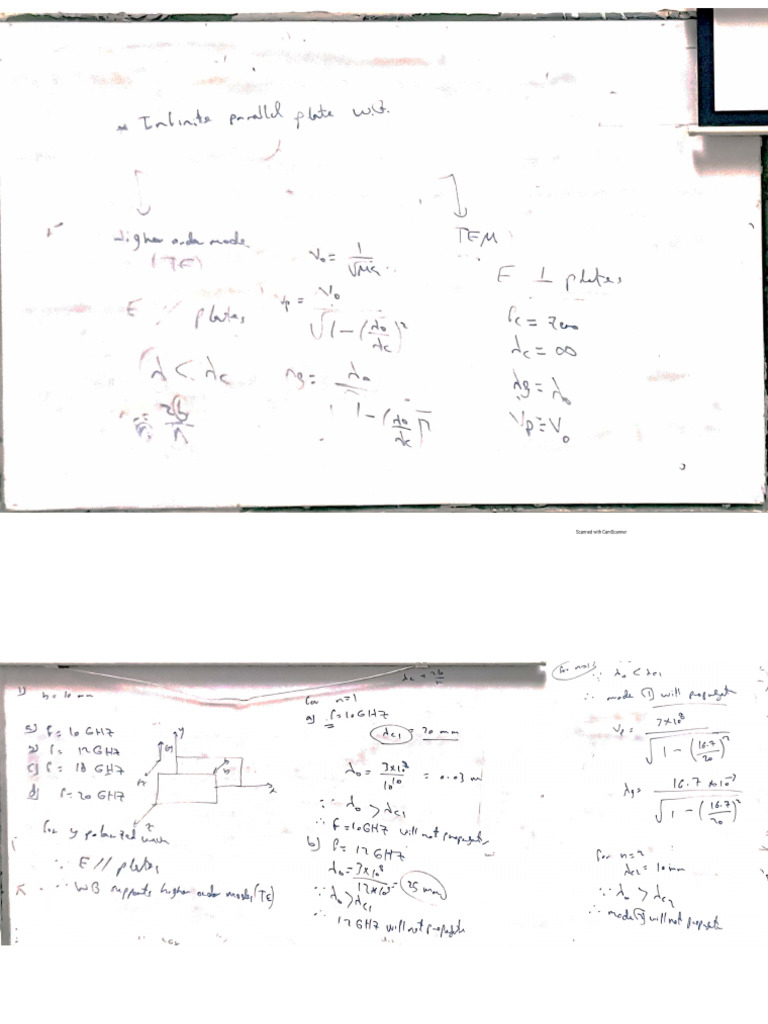 * Infinite parallel plate W.G.
Higher order mode
(TE)
E // plates
λ < λc
= 2b/n
V₀ = 1/√με
Vp = V₀/√(1-(λ₀/λc)²)
λg = λ₀/√(1-(λ₀/λc)²)
TEM
E ⊥ plates
fc = Zero
λc = ∞
λg = λ₀
Vp = V₀
Scanned with CamScanner
1) b = 10 mm
f = 10 GHz
f = 12 GHz
c) f = 18 GHz
d) f = 20 GHz
y
x
z
b
for y polarized wave
∴ E // plates
∴ WG supports higher order modes (TE)
λc = 2b/n
for n=1
a) f=10GHz
λc1 = 20 mm
λ₀ = 3×10⁸/10¹⁰ = 0.03 m
∵ λ₀ > λc1
∴ f=10GHz will not propagate
b) f = 12 GHz
λ₀ = 3×10⁸/12×10⁹ = 25 mm
∵ λ₀ > λc1
∴ 12 GHz will not propagate
∵ λ₀ < λc1
∴ mode (1) will propagate
Vp = 3×10⁸/√(1-(16.7/20)²)
λg = 16.7×10⁻³/√(1-(16.7/20)²)
for n=2
λc2 = 10mm
∵ λ₀ > λc2
∴ mode (2) will not propagate